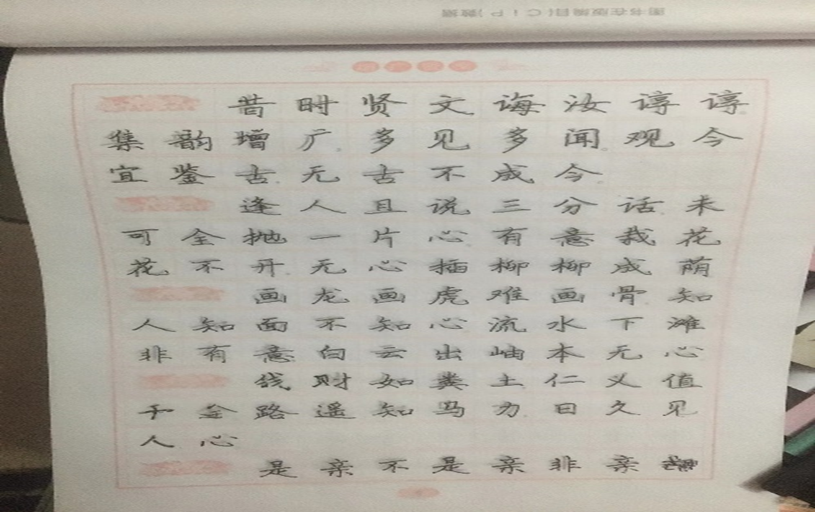 图书在版编目(CIP)数据
昔时贤文诲汝谆谆
集韵增广多见多闻观今
宜鉴古无古不成今
逢人且说三分话未
可全抛一片心有意栽花
花不开无心插柳柳成荫
画龙画虎难画骨知
人知面不知心流水下滩
非有意白云出岫本无心
钱财如粪土仁义值
千金路遥知马力日久见
人心
是亲不是亲非亲却